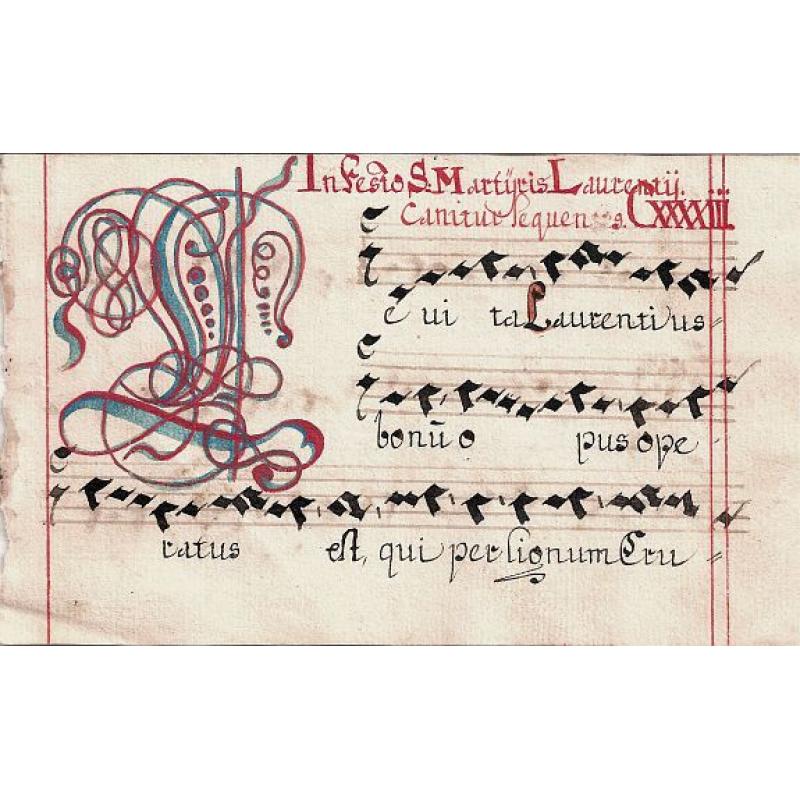 In Festo S. Martÿris Laurentij.
Canitur sequens CXXXXIII.
L e ui ta Laurentius
bonū o pus ope
ratus est, qui per lignum Cru